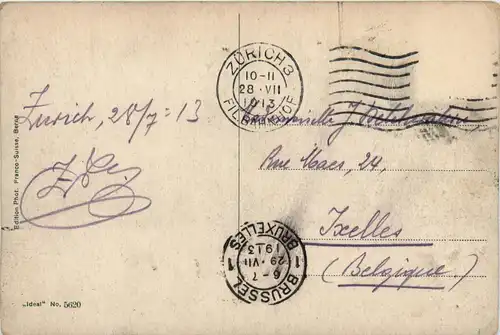 ZÜRICH 3
10-11
28·VII
1913
FIL. BAHNHOF
Zurich, 28/7=13
Mademoiselle J
Rue Maes, 24,
Ixelles
(Belgique)
BRUXELLES
1913
29·VII
6-7
1 BRUSSEL 1
Edition Phot. Franco-Suisse, Berne
„Ideal" No. 5620